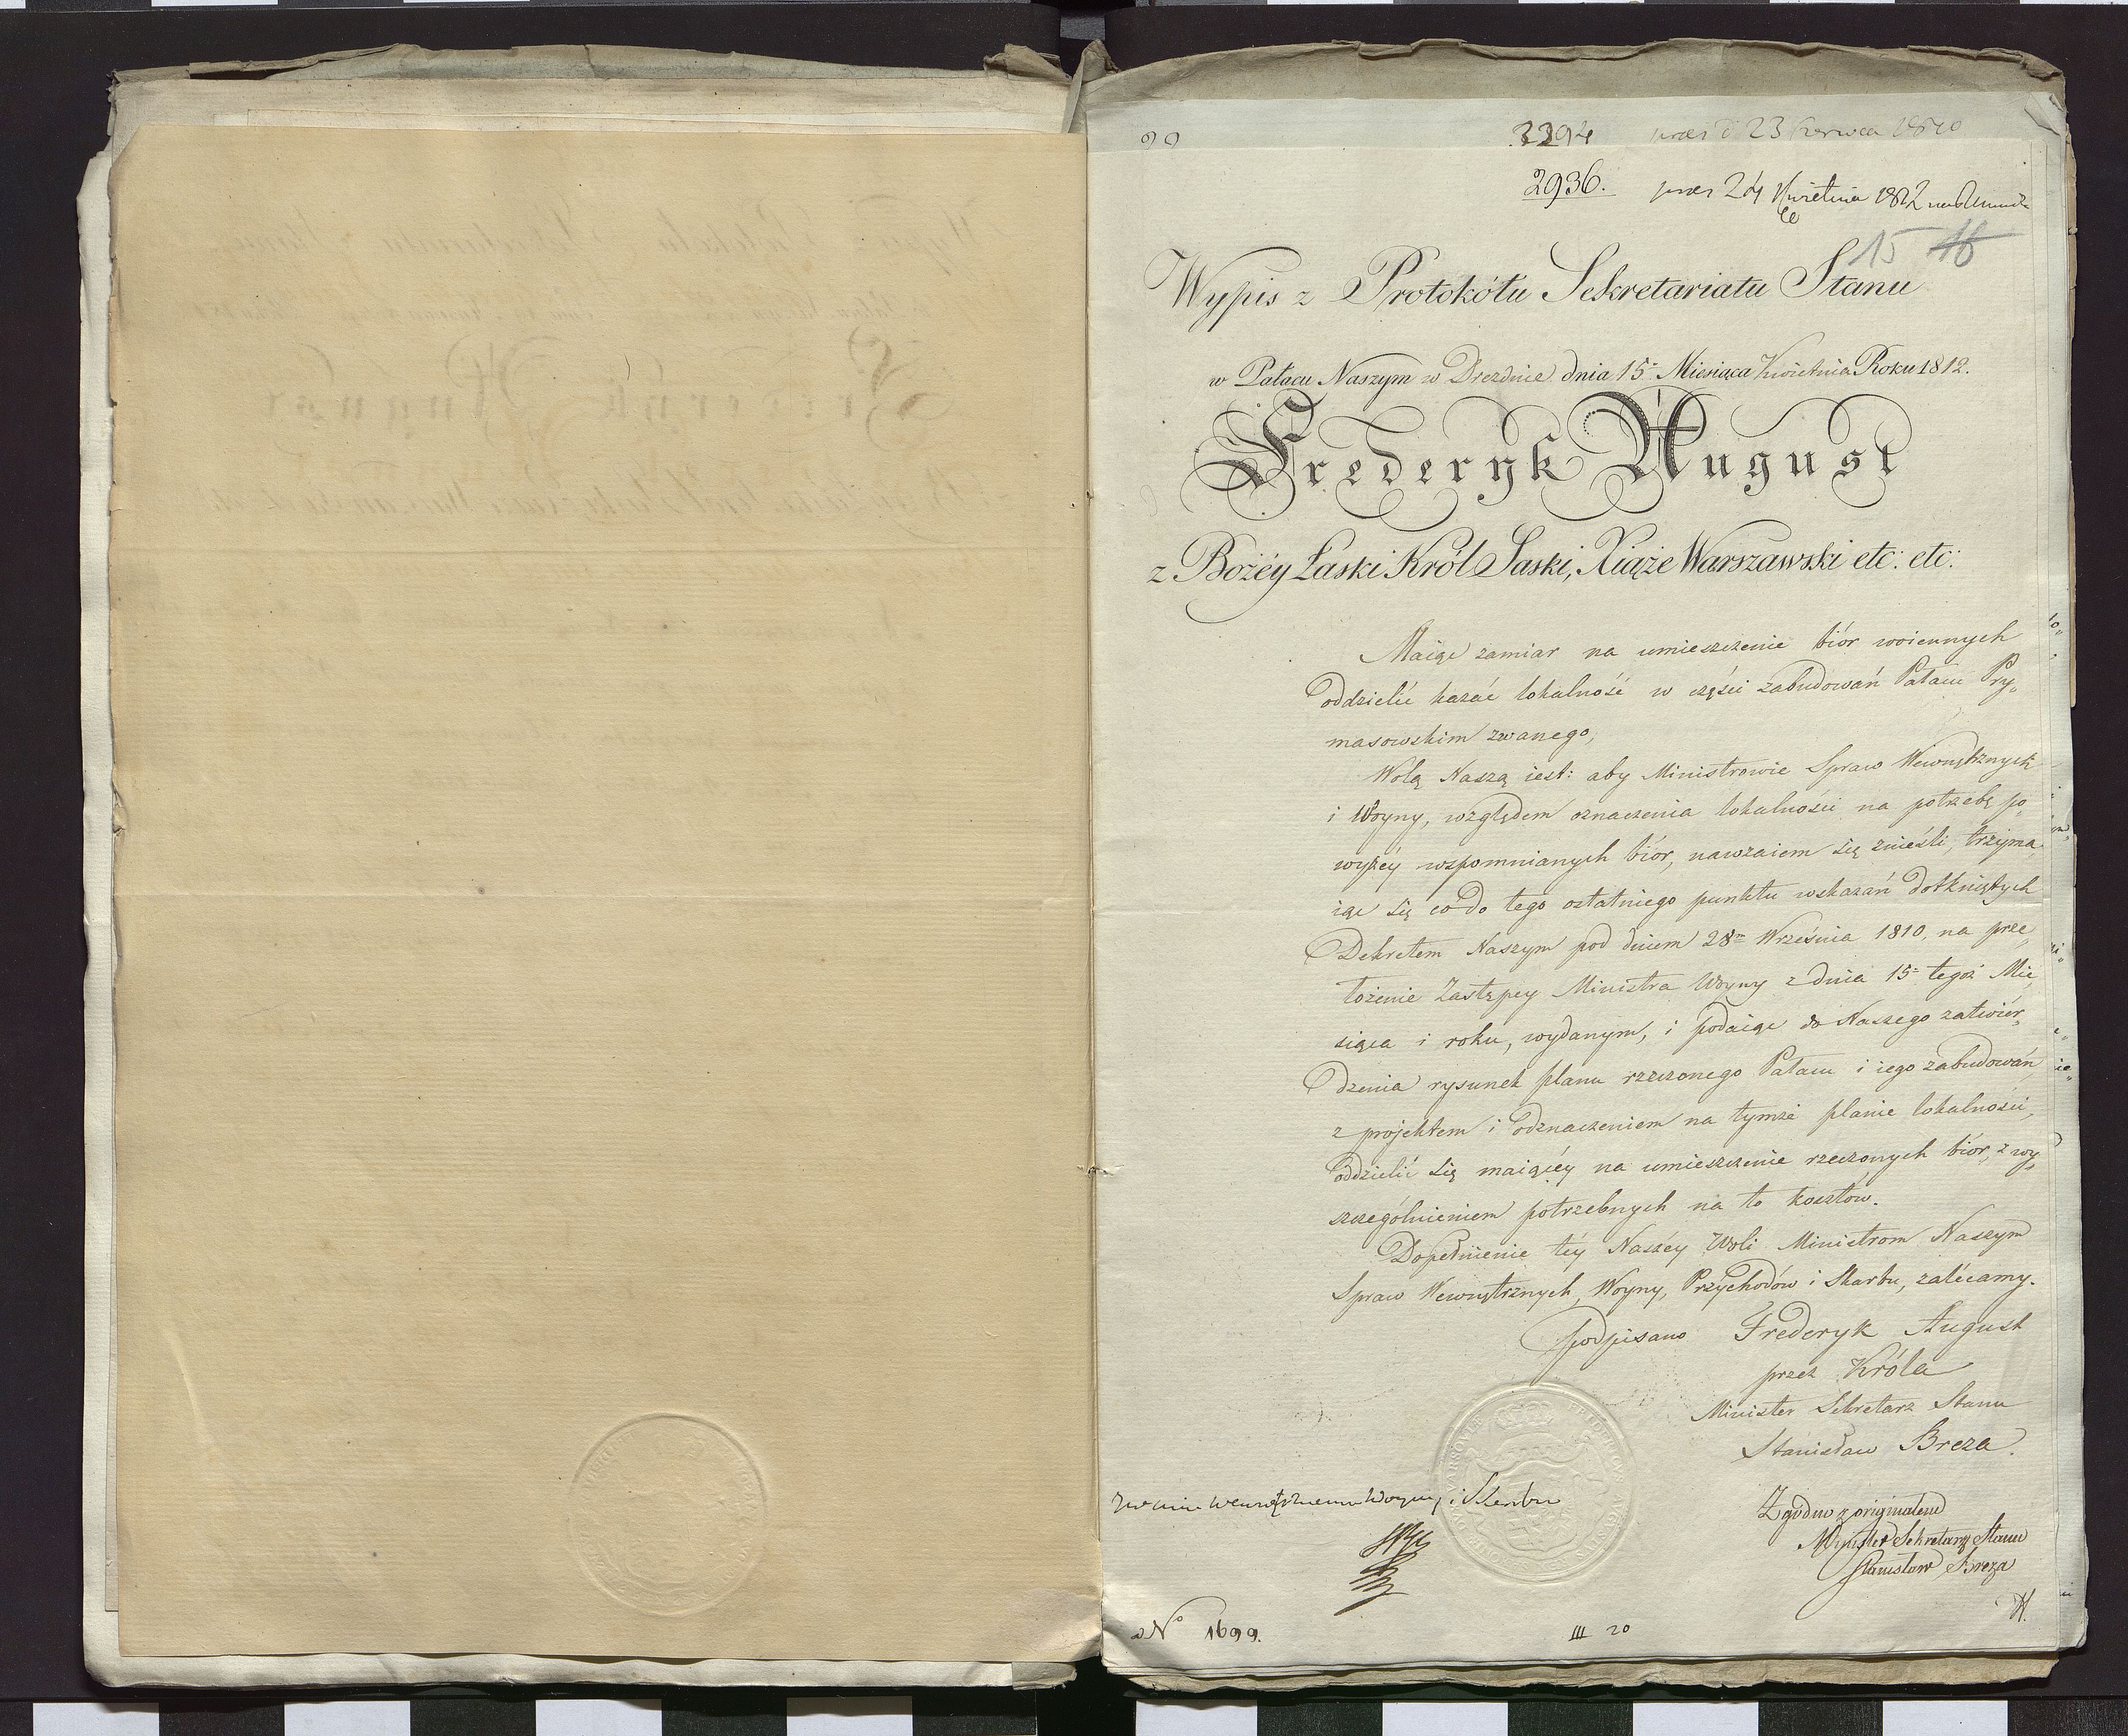 2294 prez d 23 Czerwca 1810
2936. prez 24 Kwietnia 1812
15 16
Wypis z Protokółu Sekretariatu Stanu
w Pałacu Naszym w Dreznie dnia 15. Miesiąca Kwietnia Roku 1812.
Frederyk August
z Bożéy Łaski Król Saski, Xiąże Warszawski etc: etc:
Maiąc zamiar na umieszczenie biór woiennych
oddzielić kazać lokalność w części zabudowań Pałacu Pry„
masowskim zwanego,
Wolą Naszą iest: aby Ministrowie Spraw Wewnętrznych
i Woyny, względem oznaczenia lokalności na potrzebę po„
wyżéy wspomnianych biór, nawzaiem się znieśli, trzyma„
iąc się co do tego ostatniego punktu wskazań dotkniętych
Dekretem Naszym pod dniem 28m Września 1810. na prze„
łożenie Zastępcy Ministra Woyny z dnia 15= tegoż Mie„
siąca i roku, wydanym, i podaiąc do Naszego zatwiér„
dzenia rysunek planu rzeczonego Pałacu i iego zabudowań
z projektem i odznaczeniem na tymże planie lokalności,
oddzielić się maiącéy na umieszczenie rzeczonych biór, z wy„
szczególnieniem potrzebnych na to kosztów.
Dopełnienie téy Naszéy Woli Ministrom Naszym
Spraw Wewnętrznych, Woyny, Przychodów i Skarbu, zalécamy.
podpisano Frederyk August
przez Króla
Minister Sekretarz Stanu
Stanisław Breza.
Wewnętrznemu Woyny, i Skarbu
Zgodno z originałem
Minister Sekretarz Stanu
Stanisław Breza
No 1699.
III 20